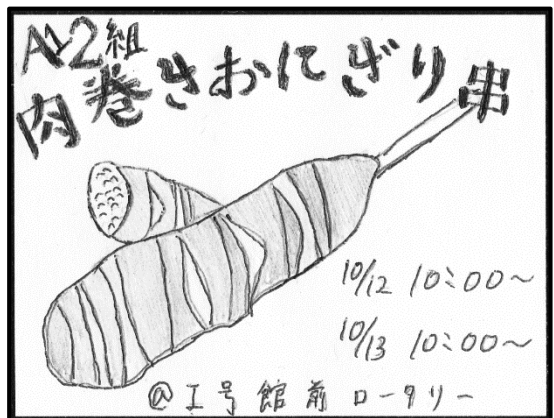 A12組
肉巻きおにぎり串
10/12 10:00~
10/13 10:00~
@工号館前ロータリー